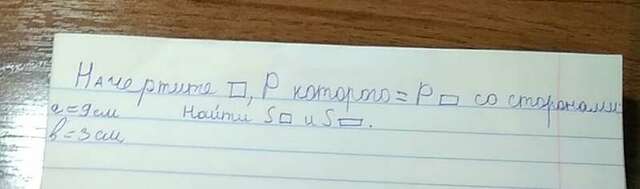 Начертите □, P которого = P ▭ со сторонами
a = 9 см Найти S□ и S▭.
b = 3 см